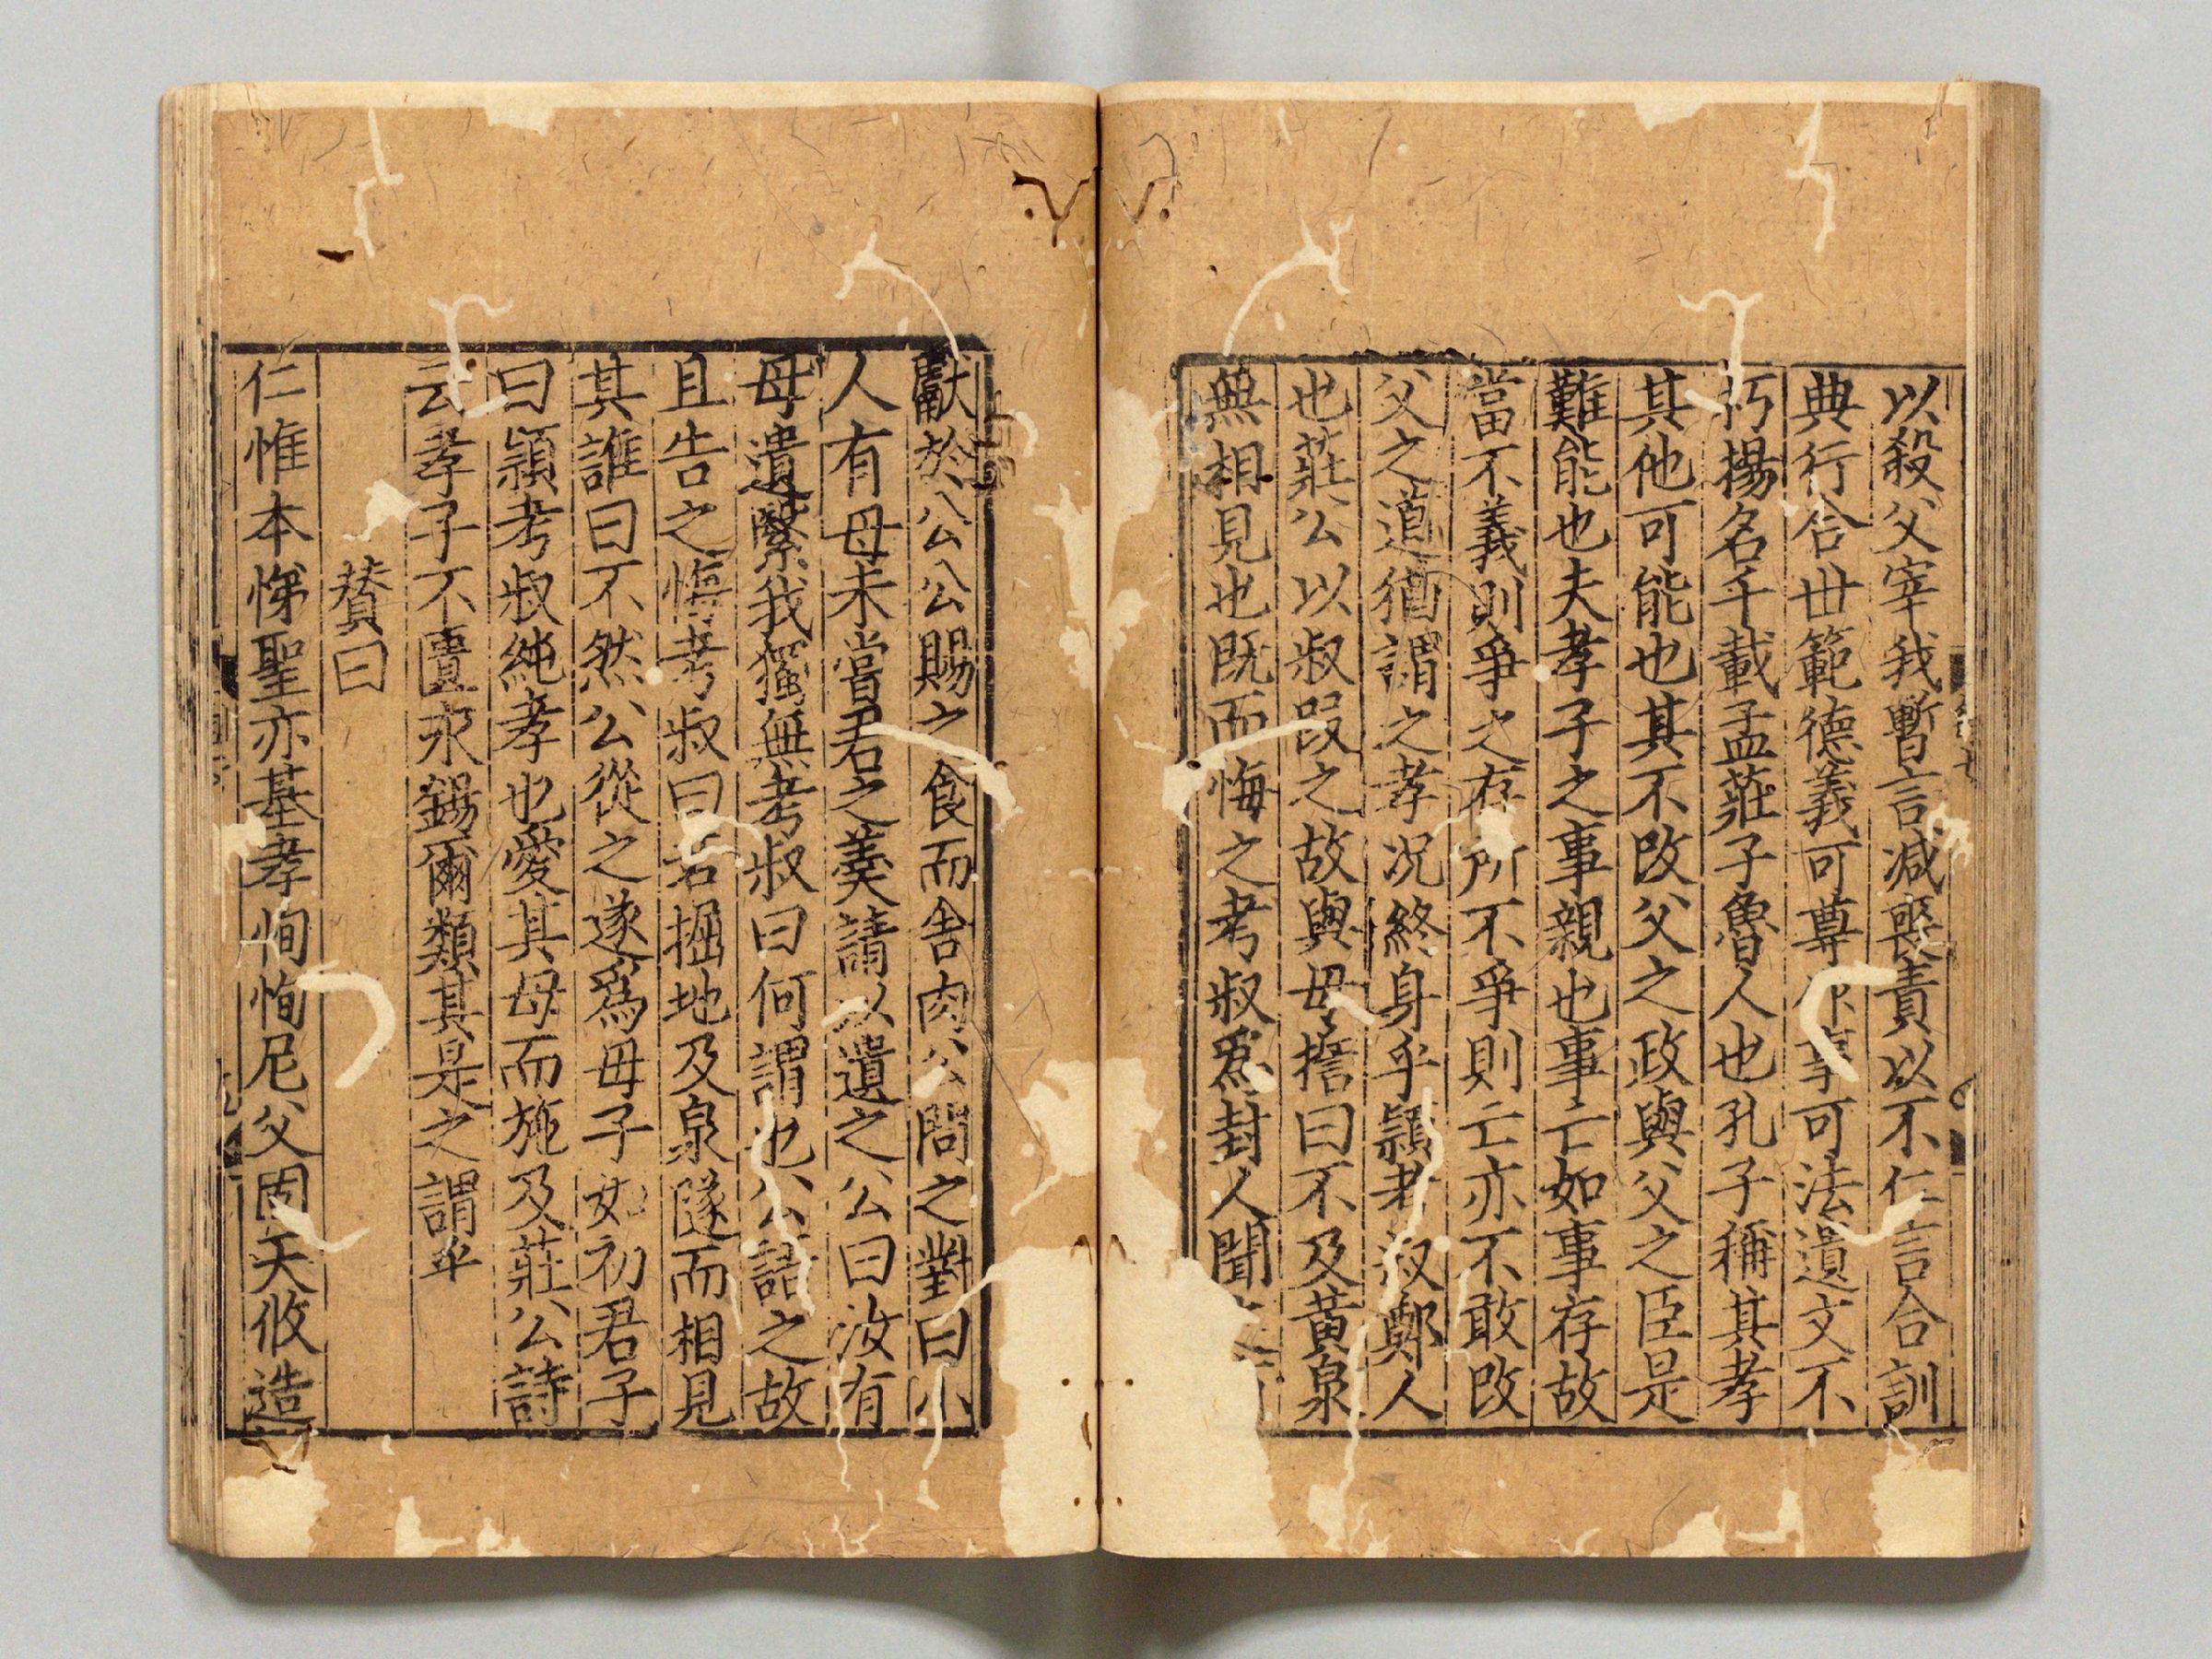 以殺父宰我暫言減喪責以不仁言合訓
典行合世範德義可尊作事可法遺文不
朽揚名千載孟莊子魯人也孔子稱其孝
其他可能也其不改父之政與父之臣是
難能也夫孝子之事親也事亡如事存故
當不義則爭之存所不爭則亡亦不敢改
父之道猶謂之孝况終身乎頴考叔鄭人
也莊公以叔段之故與母誓曰不及黃泉
無相見也既而悔之考叔爲封人聞
獻於公公賜之食而舍肉公問之對曰小
人有母未嘗君之羹請以遺之公曰汝有
母遺繄我獨無考叔曰何謂也公語之故
且告之悔考叔曰若掘地及泉隧而相見
其誰曰不然公從之遂爲母子如初君子
曰頴考叔純孝也愛其母而施及莊公詩
云孝子不匱永錫爾類其是之謂乎
賛曰
仁惟本悌聖亦基孝恂恂尼父固天攸造